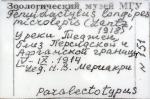 Зоологический музей МГУ
Tenuidactylus longipes
microlepis (Lantz,
1918)
У реки Теджен,
близ Персидской и
Афганской границы
IV-IX. 1914
paralectotypus